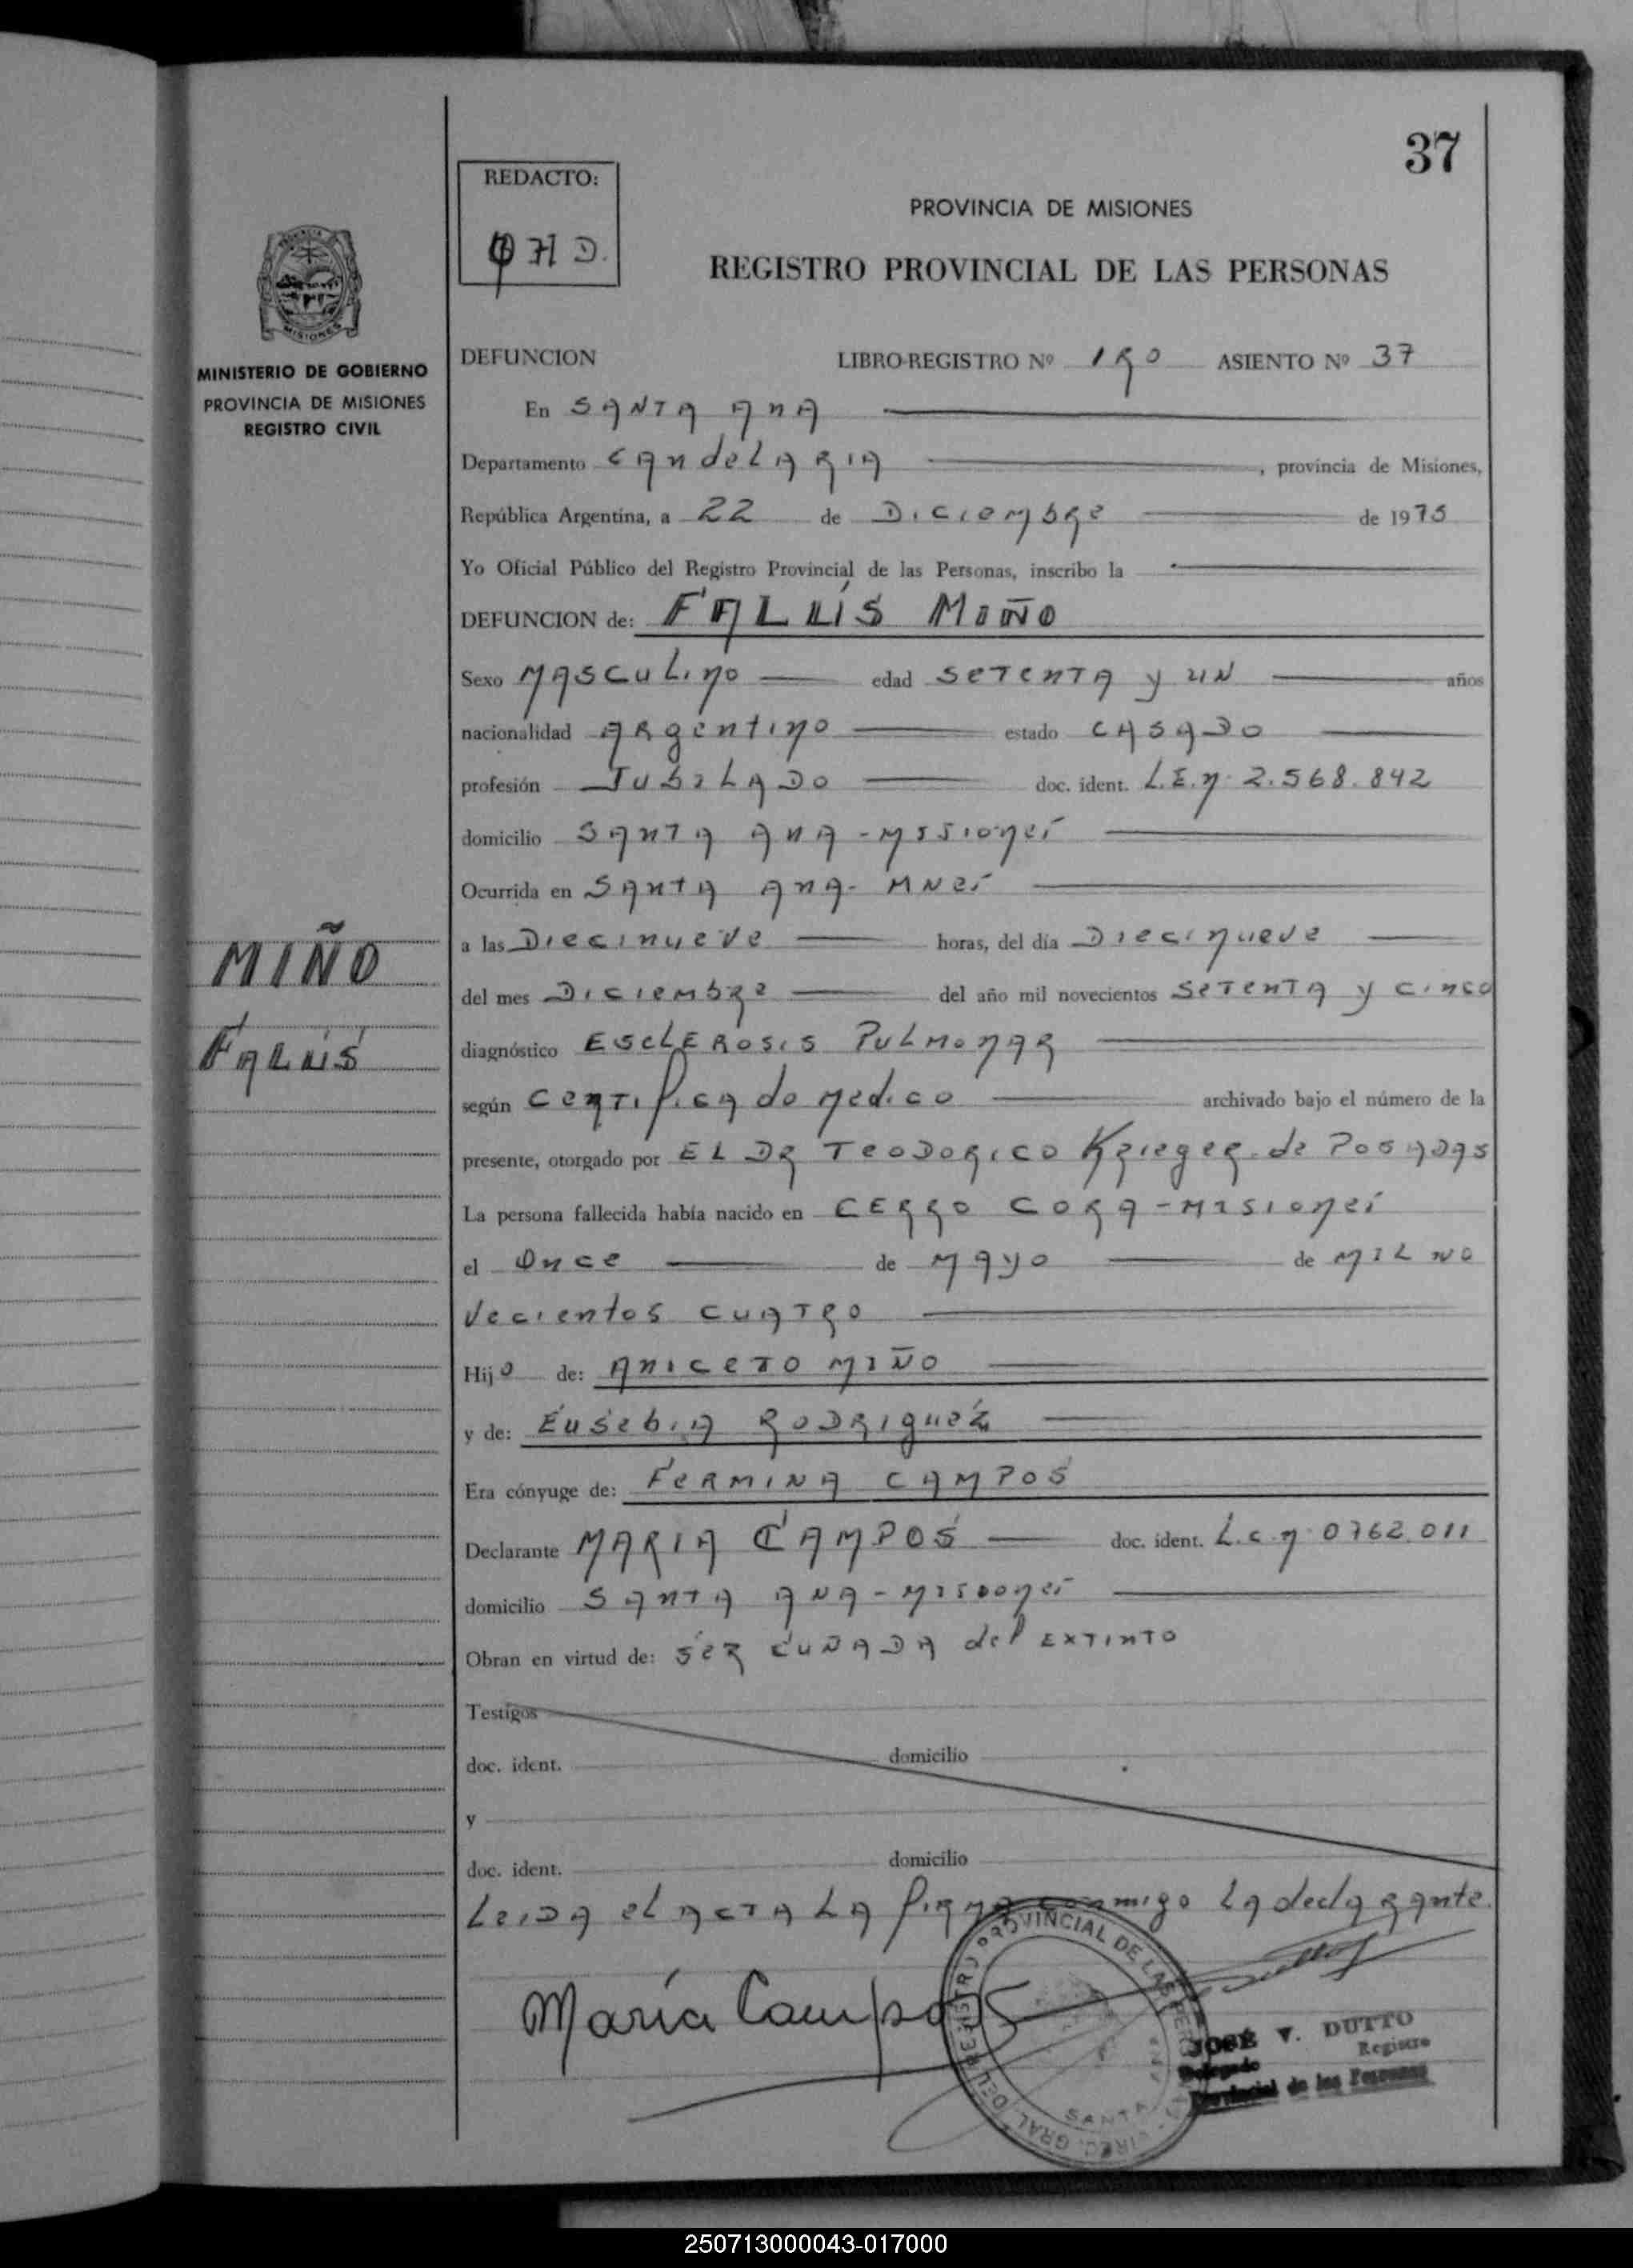 37
REDACTO:
JHD.
PROVINCIA DE MISIONES
REGISTRO PROVINCIAL DE LAS PERSONAS
MINISTERIO DE GOBIERNO
PROVINCIA DE MISIONES
REGISTRO CIVIL
DEFUNCION LIBRO-REGISTRO Nº 1RO ASIENTO Nº 37
En SANTA ANA
Departamento CANdeLARIA, provincia de Misiones,
República Argentina, a 22 de DiCiembre de 1975
Yo Oficial Público del Registro Provincial de las Personas, inscribo la
DEFUNCION de: FALUIS MIÑO
Sexo MASCULino edad SETENTA y UN años
nacionalidad ARgentino estado CASADO
profesión JUBILADO doc. ident. L.E.N. 2.568.842
domicilio SANTA ANA - Misiones
Ocurrida en SANTA ANA - MNes
a las Diecinueve horas, del día Diecinueve
del mes DICIEMBRe del año mil novecientos SETENTA y cinco
diagnóstico ESCLEROSIS PULMONAR
según ceRTificado Medico archivado bajo el número de la
presente, otorgado por EL DR TEODORICO Krieger de POSADAS
La persona fallecida había nacido en CERRO CORA - MISIONes
el Once de MAyo de MIL NO
vecientos CUATRO
Hijo de: ANICETO MIÑO
y de: EUSEBIA RODRIGUEZ
Era cónyuge de: FERMINA CAMPOS
Declarante MARIA CAMPOS doc. ident. L.C.N. 0762.011
domicilio SANTA ANA - Misiones
Obran en virtud de: SER CUÑADA del EXTINTO
Testigos
doc. ident. domicilio
y
doc. ident. domicilio
LeiDA el ACTA LA firma conmigo LA declarante.
María Campos
JOSÉ V. DUTTO
Delegado Registro
Provincial de las Personas
MIÑO
FALUIS
250713000043-017000